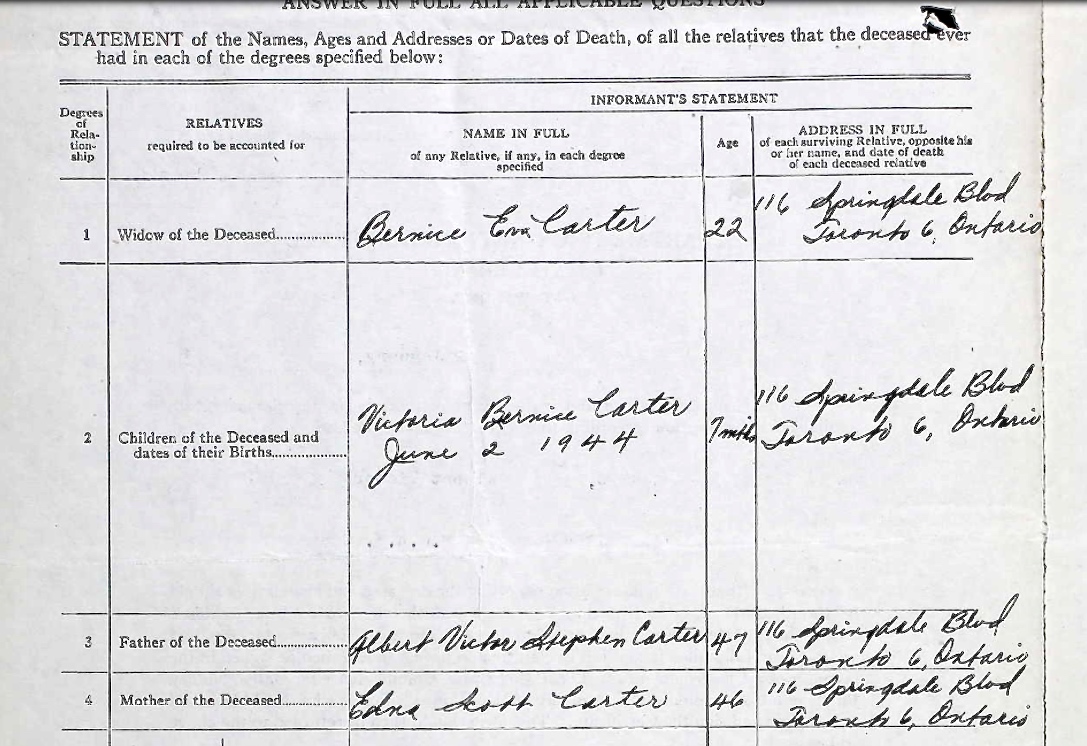 ANSWER IN FULL ALL APPLICABLE QUESTIONS
STATEMENT of the Names, Ages and Addresses or Dates of Death, of all the relatives that the deceased ever
had in each of the degrees specified below:
Degrees
of
Rela-
tion-
ship
RELATIVES
required to be accounted for
INFORMANT'S STATEMENT
NAME IN FULL
of any Relative, if any, in each degree
specified
Age
ADDRESS IN FULL
of each surviving Relative, opposite his
or her name, and date of death
of each deceased relative
1
Widow of the Deceased..................
Bernice Eva Carter
22
116 Springdale Blvd
Toronto 6, Ontario
2
Children of the Deceased and
dates of their Births..................
Victoria Bernice Carter
June 2 1944
7 mths
116 Springdale Blvd
Toronto 6, Ontario
3
Father of the Deceased..................
Albert Victor Stephen Carter
47
116 Springdale Blvd
Toronto 6, Ontario
4
Mother of the Deceased..................
Edna Scott Carter
46
116 Springdale Blvd
Toronto 6, Ontario